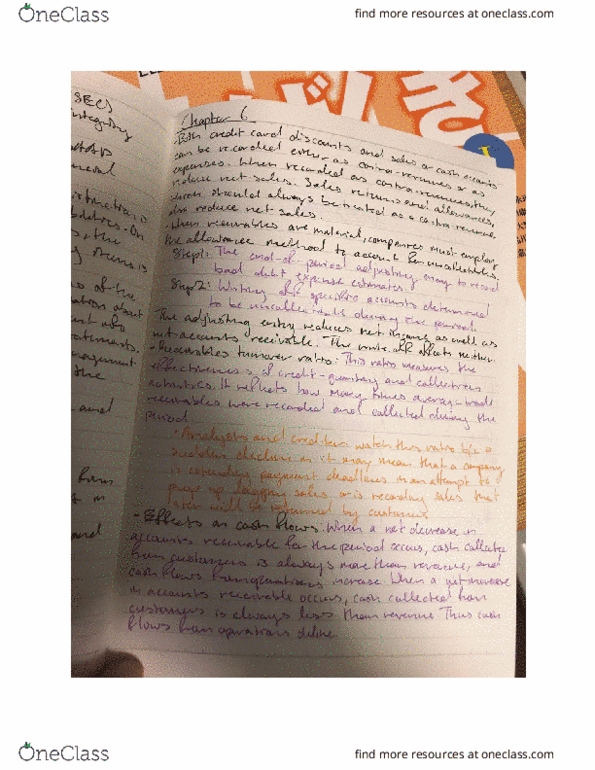 OneClass
find more resources at oneclass.com
SEC)
integrity
Chapter 6
Both credit card discounts and sales or cash discounts
can be recorded either as contra-revenues or as
expenses. When recorded as contra-revenues, they
reduce net sales. Sales returns and allowances,
should always be treated as a contra-revenue
also reduce net sales.
When receivables are material, companies must employ
the allowance method to account for uncollectibles.
Step 1: The end-of-period adjusting entry to record
bad debt expense estimates.
Step 2: Writing off specific accounts determined
to be uncollectible during the period
The adjusting entry reduces net income as well as
net accounts receivable. The write off affects neither.
- Receivables turnover ratio: This ratio measures the
effectiveness of credit-granting and collection
activities. It reflects how many times average trade
receivables were recorded and collected during the
period.
- Analysts and creditors watch this ratio b/c a
sudden decline in it may mean that a company
is extending payment deadlines in an attempt to
prop up lagging sales or is recording sales that
later will be returned by customers
- Effects on cash flows: When a net decrease in
accounts receivable for the period occurs, cash collected
from customers is always more than revenue, and
cash flows from operations increase. When a net increase
in accounts receivable occurs, cash collected from
customers is always less than revenue. Thus cash
flows from operations decline
OneClass
find more resources at oneclass.com